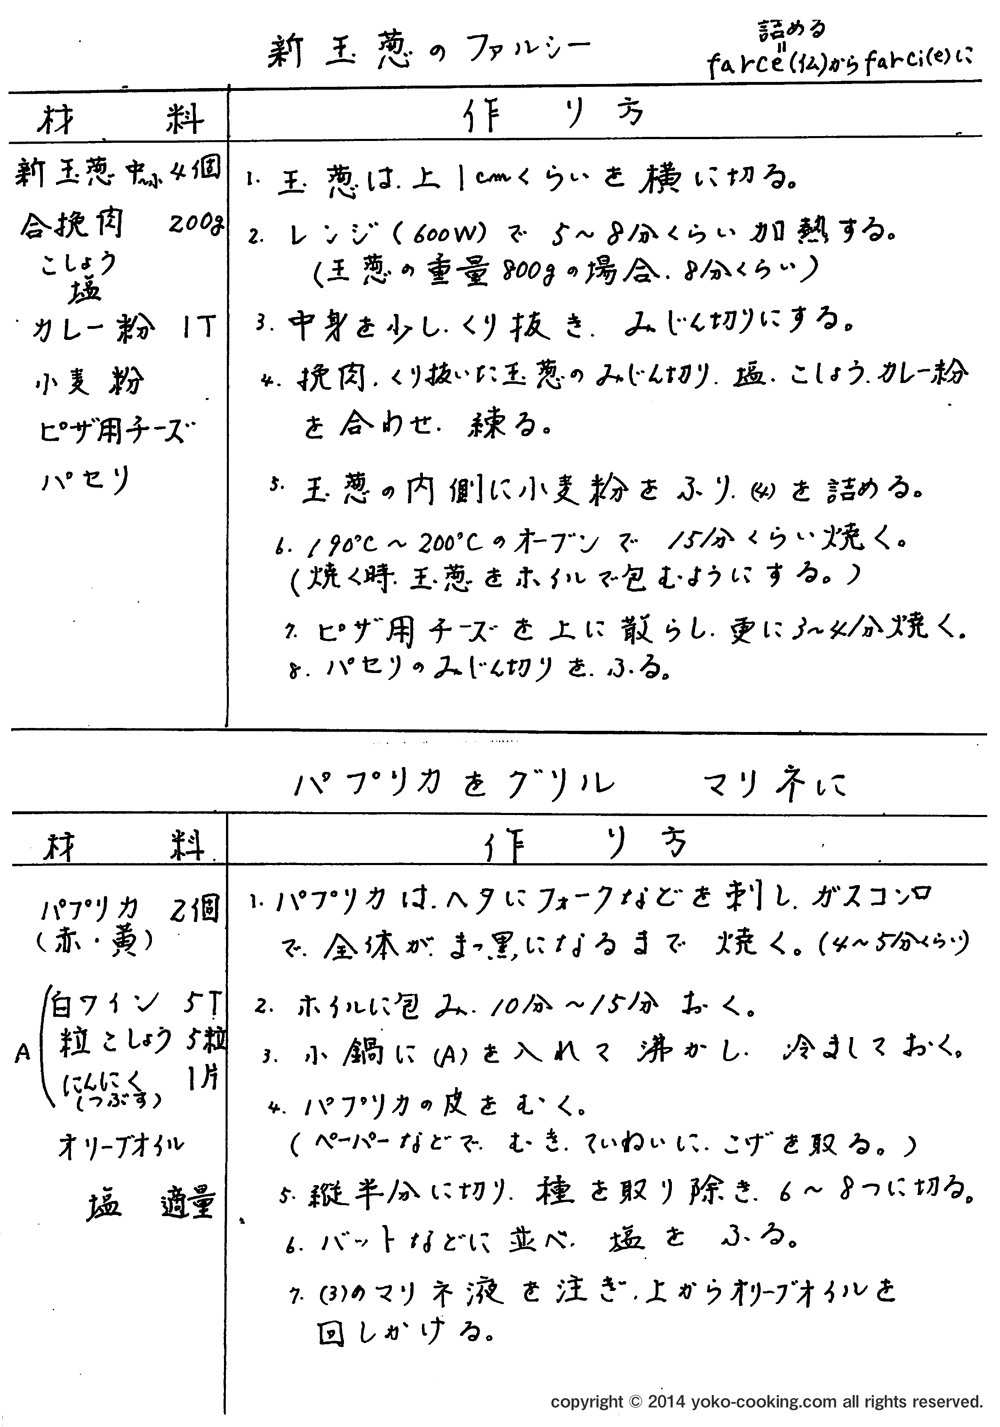 新玉葱のファルシー
詰める
〃
farce(仏)からfarci(e)に
材 料
作 り 方
新玉葱 中小 4個
合挽肉 200g
こしょう
塩
カレー粉 1T
小麦粉
ピザ用チーズ
パセリ
1. 玉葱は、上1cmくらいを横に切る。
2. レンジ(600W)で 5〜8分くらい加熱する。
(玉葱の重量800gの場合、8分くらい)
3. 中身を少し、くり抜き、みじん切りにする。
4. 挽肉、くり抜いた玉葱のみじん切り、塩、こしょう、カレー粉
を合わせ、練る。
5. 玉葱の内側に小麦粉をふり、(4)を詰める。
6. 190℃〜200℃のオーブンで 15分くらい焼く。
(焼く時、玉葱をホイルで包むようにする。)
7. ピザ用チーズを上に散らし、更に3〜4分焼く。
8. パセリのみじん切りを、ふる。
パプリカをグリル マリネに
材 料
作 り 方
パプリカ 2個
(赤・黄)
A
白ワイン 5T
粒こしょう 5粒
にんにく 1片
(つぶす)
オリーブオイル
塩 適量
1. パプリカは、ヘタにフォークなどを刺し、ガスコンロ
で、全体が、まっ黒になるまで 焼く。(4〜5分くらい)
2. ホイルに包み、10分〜15分 おく。
3. 小鍋に(A)を入れて 沸かし、冷ましておく。
4. パプリカの皮をむく。
(ペーパーなどで、むき、ていねいに、こげを取る。)
5. 縦半分に切り、種を取り除き、6〜8つに切る。
6. バットなどに並べ、塩をふる。
7. (3)のマリネ液を注ぎ、上からオリーブオイルを
回しかける。
copyright © 2014 yoko-cooking.com all rights reserved.